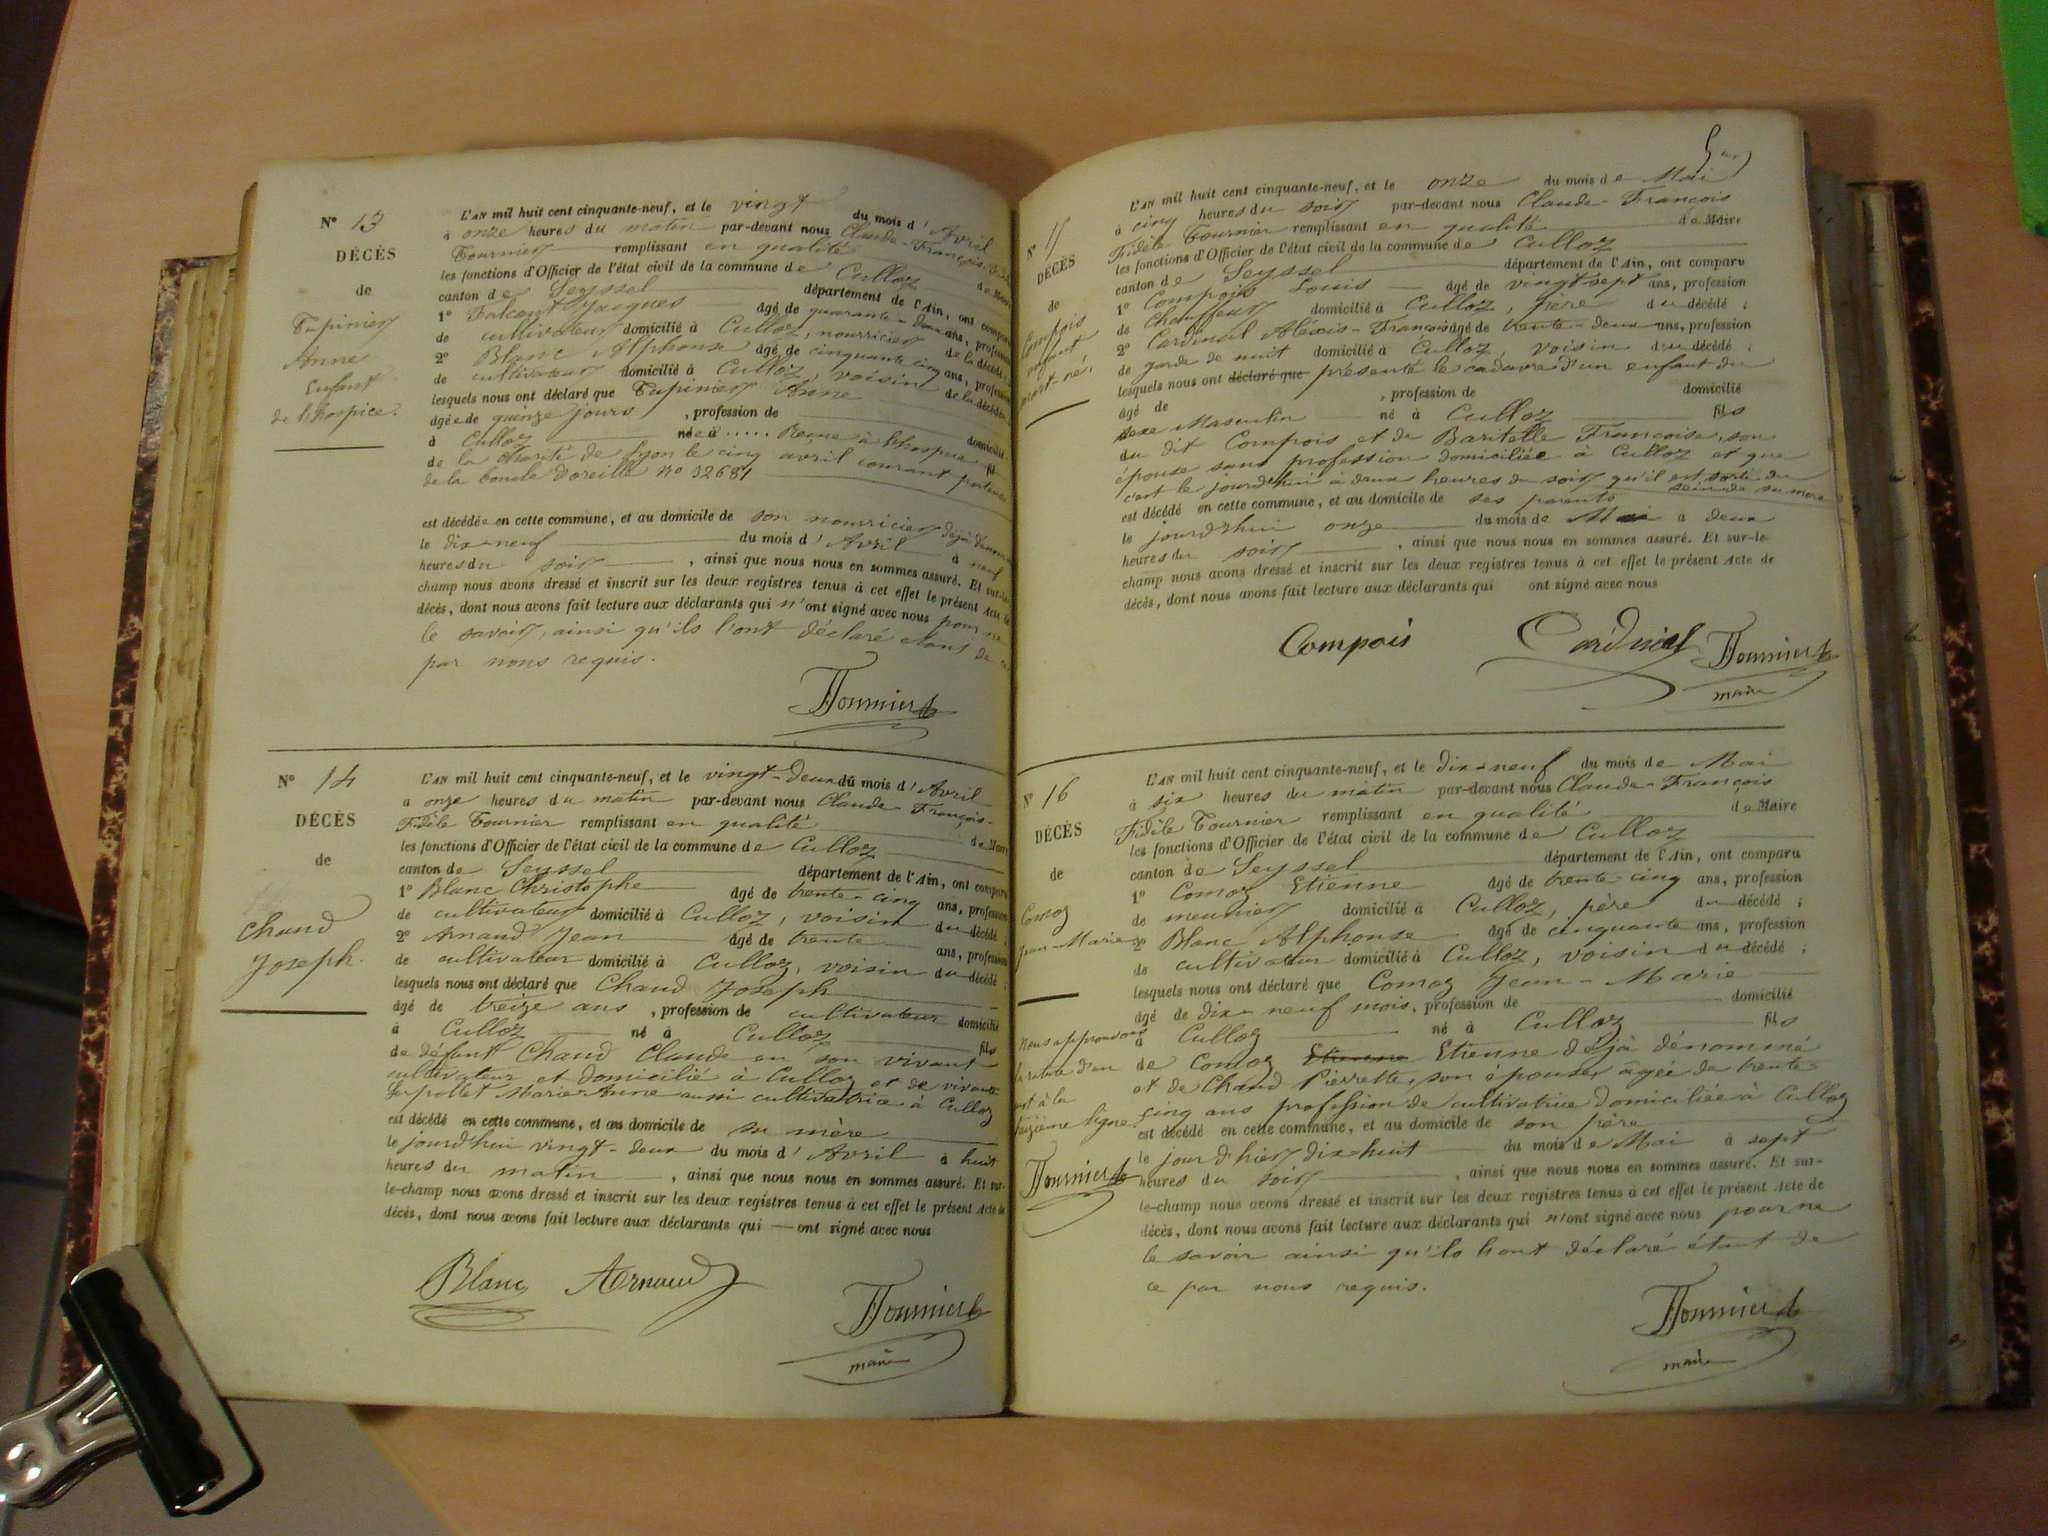 N° 13
DÉCÈS
de
Tupinier
Anne
Enfant
de l'hospice.
L'AN mil huit cent cinquante-neuf, et le vingt du mois d'Avril
à onze heures du matin par-devant nous Claude-François
Tournier remplissant en qualité de Maire
les fonctions d'Officier de l'état civil de la commune de Culloz
canton de Seyssel département de l'Ain, ont comparu
1° Falcont Jacques âgé de quarante-deux ans, profession
de cultivateur domicilié à Culloz, nourricier de la décédée
2° Blanc Alphonse âgé de cinquante cinq ans, profession
de cultivateur domicilié à Culloz, voisin de la décédée
lesquels nous ont déclaré que Tupinier Anne
âgée de quinze jours , profession de domicilié
à Culloz née à ..... Reçue à l'hospice fil
de la charité de Lyon le cinq avril courant
de la boucle d'oreille no 32681
est décédée en cette commune, et au domicile de son nourricier déjà
le dix-neuf du mois d'Avril à neuf
heures du soir , ainsi que nous nous en sommes assuré. Et sur-le-
champ nous avons dressé et inscrit sur les deux registres tenus à cet effet le présent Acte de
décès, dont nous avons fait lecture aux déclarants qui n'ont signé avec nous pour ne
le savoir, ainsi qu'ils l'ont déclaré étant de ce
par nous requis.
Tournier
N° 14
DÉCÈS
de
Chaud
Joseph.
L'AN mil huit cent cinquante-neuf, et le vingt-deux du mois d'Avril
à onze heures du matin par-devant nous Claude-François-
Fidèle Tournier remplissant en qualité de Maire
les fonctions d'Officier de l'état civil de la commune de Culloz
canton de Seyssel département de l'Ain, ont comparu
1° Blanc Christophe âgé de trente-cinq ans, profession
de cultivateur domicilié à Culloz, voisin du décédé ;
2° Arnaud Jean âgé de trente ans, profession
de cultivateur domicilié à Culloz, voisin du décédé ;
lesquels nous ont déclaré que Chaud Joseph
âgé de treize ans , profession de cultivateur domicilié
à Culloz né à Culloz fils
de défunt Chaud Claude en son vivant
cultivateur et domicilié à Culloz et de vivante
Serpollet Marie-Anne aussi cultivatrice à Culloz
est décédé en cette commune, et au domicile de sa mère
le jourd'hui vingt-deux du mois d'Avril à huit
heures du matin , ainsi que nous nous en sommes assuré. Et sur-
le-champ nous avons dressé et inscrit sur les deux registres tenus à cet effet le présent Acte de
décès, dont nous avons fait lecture aux déclarants qui ont signé avec nous
Blanc Arnaud Tournier
maire
N° 15
DÉCÈS
de
Compois
enfant
mort-né.
L'AN mil huit cent cinquante-neuf, et le onze du mois de Mai
à cinq heures du soir par-devant nous Claude-François
Fidèle Tournier remplissant en qualité de Maire
les fonctions d'Officier de l'état civil de la commune de Culloz
canton de Seyssel département de l'Ain, ont comparu
1° Compois Louis âgé de vingt-sept ans, profession
de Chauffeur domicilié à Culloz, père du décédé ;
2° Cardinal Aléxis-François âgé de trente-deux ans, profession
de garde de nuit domicilié à Culloz, voisin du décédé ;
lesquels nous ont déclaré que présenté le cadavre d'un enfant du
âgé de , profession de domicilié
sexe Masculin né à Culloz fils
du dit Compois et de Baritelle Françoise, son
épouse sans profession domiciliée à Culloz et que
c'est le jourd'hui à deux heures du soir qu'il est sorti du
sein de sa mère
est décédé en cette commune, et au domicile de ses parents
le jourd'hui onze du mois de Mai à deux
heures du soir , ainsi que nous nous en sommes assuré. Et sur-le-
champ nous avons dressé et inscrit sur les deux registres tenus à cet effet le présent Acte de
décès, dont nous avons fait lecture aux déclarants qui ont signé avec nous
Compois Cardinal Tournier
maire
N° 16
DÉCÈS
de
Comoz
Jean-Marie
L'AN mil huit cent cinquante-neuf, et le dix-neuf du mois de Mai
à six heures du matin par-devant nous Claude-François
Fidèle Tournier remplissant en qualité de Maire
les fonctions d'Officier de l'état civil de la commune de Culloz
canton de Seyssel département de l'Ain, ont comparu
1° Comoz Etienne âgé de trente-cinq ans, profession
de meunier domicilié à Culloz, père du décédé ;
2° Blanc Alphonse âgé de cinquante ans, profession
de cultivateur domicilié à Culloz, voisin du décédé ;
lesquels nous ont déclaré que Comoz Jean-Marie
âgé de dix-neuf mois, profession de domicilié
à Culloz né à Culloz fils
de Comoz Etienne Etienne déjà dénommé
et de Chaud Pierrette, son épouse, agée de trente-
cinq ans profession de cultivatrice domiciliée à Culloz
est décédé en cette commune, et au domicile de son père
le jour d'hier dix-huit du mois de Mai à sept
heures du soir , ainsi que nous nous en sommes assuré. Et sur-
le-champ nous avons dressé et inscrit sur les deux registres tenus à cet effet le présent Acte de
décès, dont nous avons fait lecture aux déclarants qui n'ont signé avec nous pour ne
le savoir ainsi qu'ils l'ont déclaré étant de
ce par nous requis.
Nous approuvons
la rature d'un
mot à la
treizième ligne.
Tournier
Tournier
maire